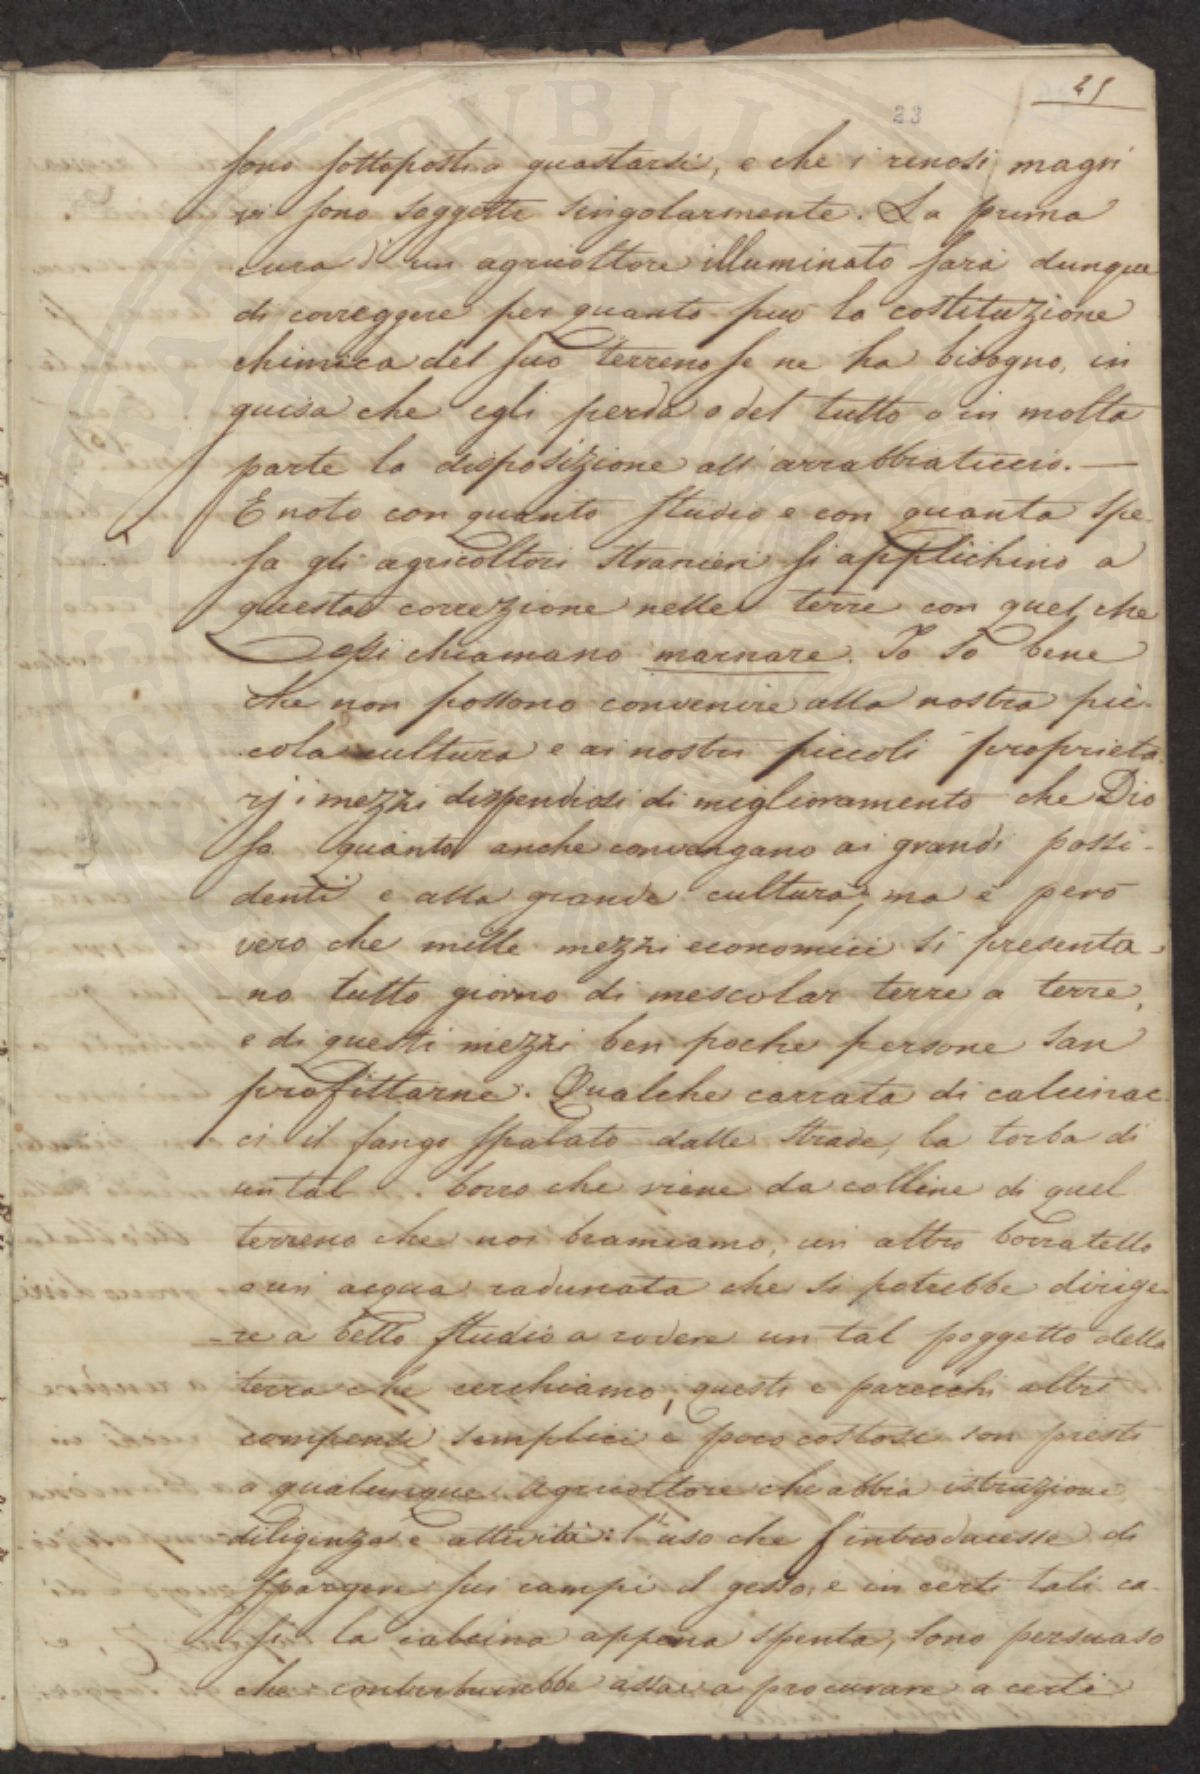 25
23
sono sottoposti a guastarsi, e che i renosi magri
vi sono soggetti singolarmente. La prima
cura di un agricoltore illuminato sarà dunque
di correggere per quanto può la costituzione
chimica del suo terreno se ne ha bisogno, in
guisa che egli perda o del tutto o in molta
parte la disposizione all'arrabbiaticcio. —
E noto con quanto studio e con quanta spe-
sa gli agricoltori stranieri si applichino a
questa correzione nelle terre con quel che
essi chiamano marnare. Io so bene
che non possono convenire alla nostra pic-
cola cultura e ai nostri piccoli proprieta-
rj i mezzi dispendiosi di miglioramento che Dio
sa quanto anche convengano ai grandi possi-
denti e alla grande cultura; ma è però
vero che mille mezzi economici si presenta-
no tutto giorno di mescolar terre a terre,
e di questi mezzi ben poche persone san
profittarne. Qualche carrata di calcinac-
ci il fango spalato dalle strade, la torba di
un tal . . borro che viene da colline di quel
terreno che noi bramiamo, un altro borratello
o un acqua radunata che si potrebbe dirige-
re a bello studio a rodere un tal poggetto della
terra che cerchiamo, questi e parecchi altri
compensi semplici e poco costosi son presti
a qualunque agricoltore che abbia istruzione
diligenza e attività: l'uso che s'introducesse di
spargere sui campi il gesso, e in certi tali ca-
si la calcina appena spenta, sono persuaso
che contribuirebbe assai a procurare a certi